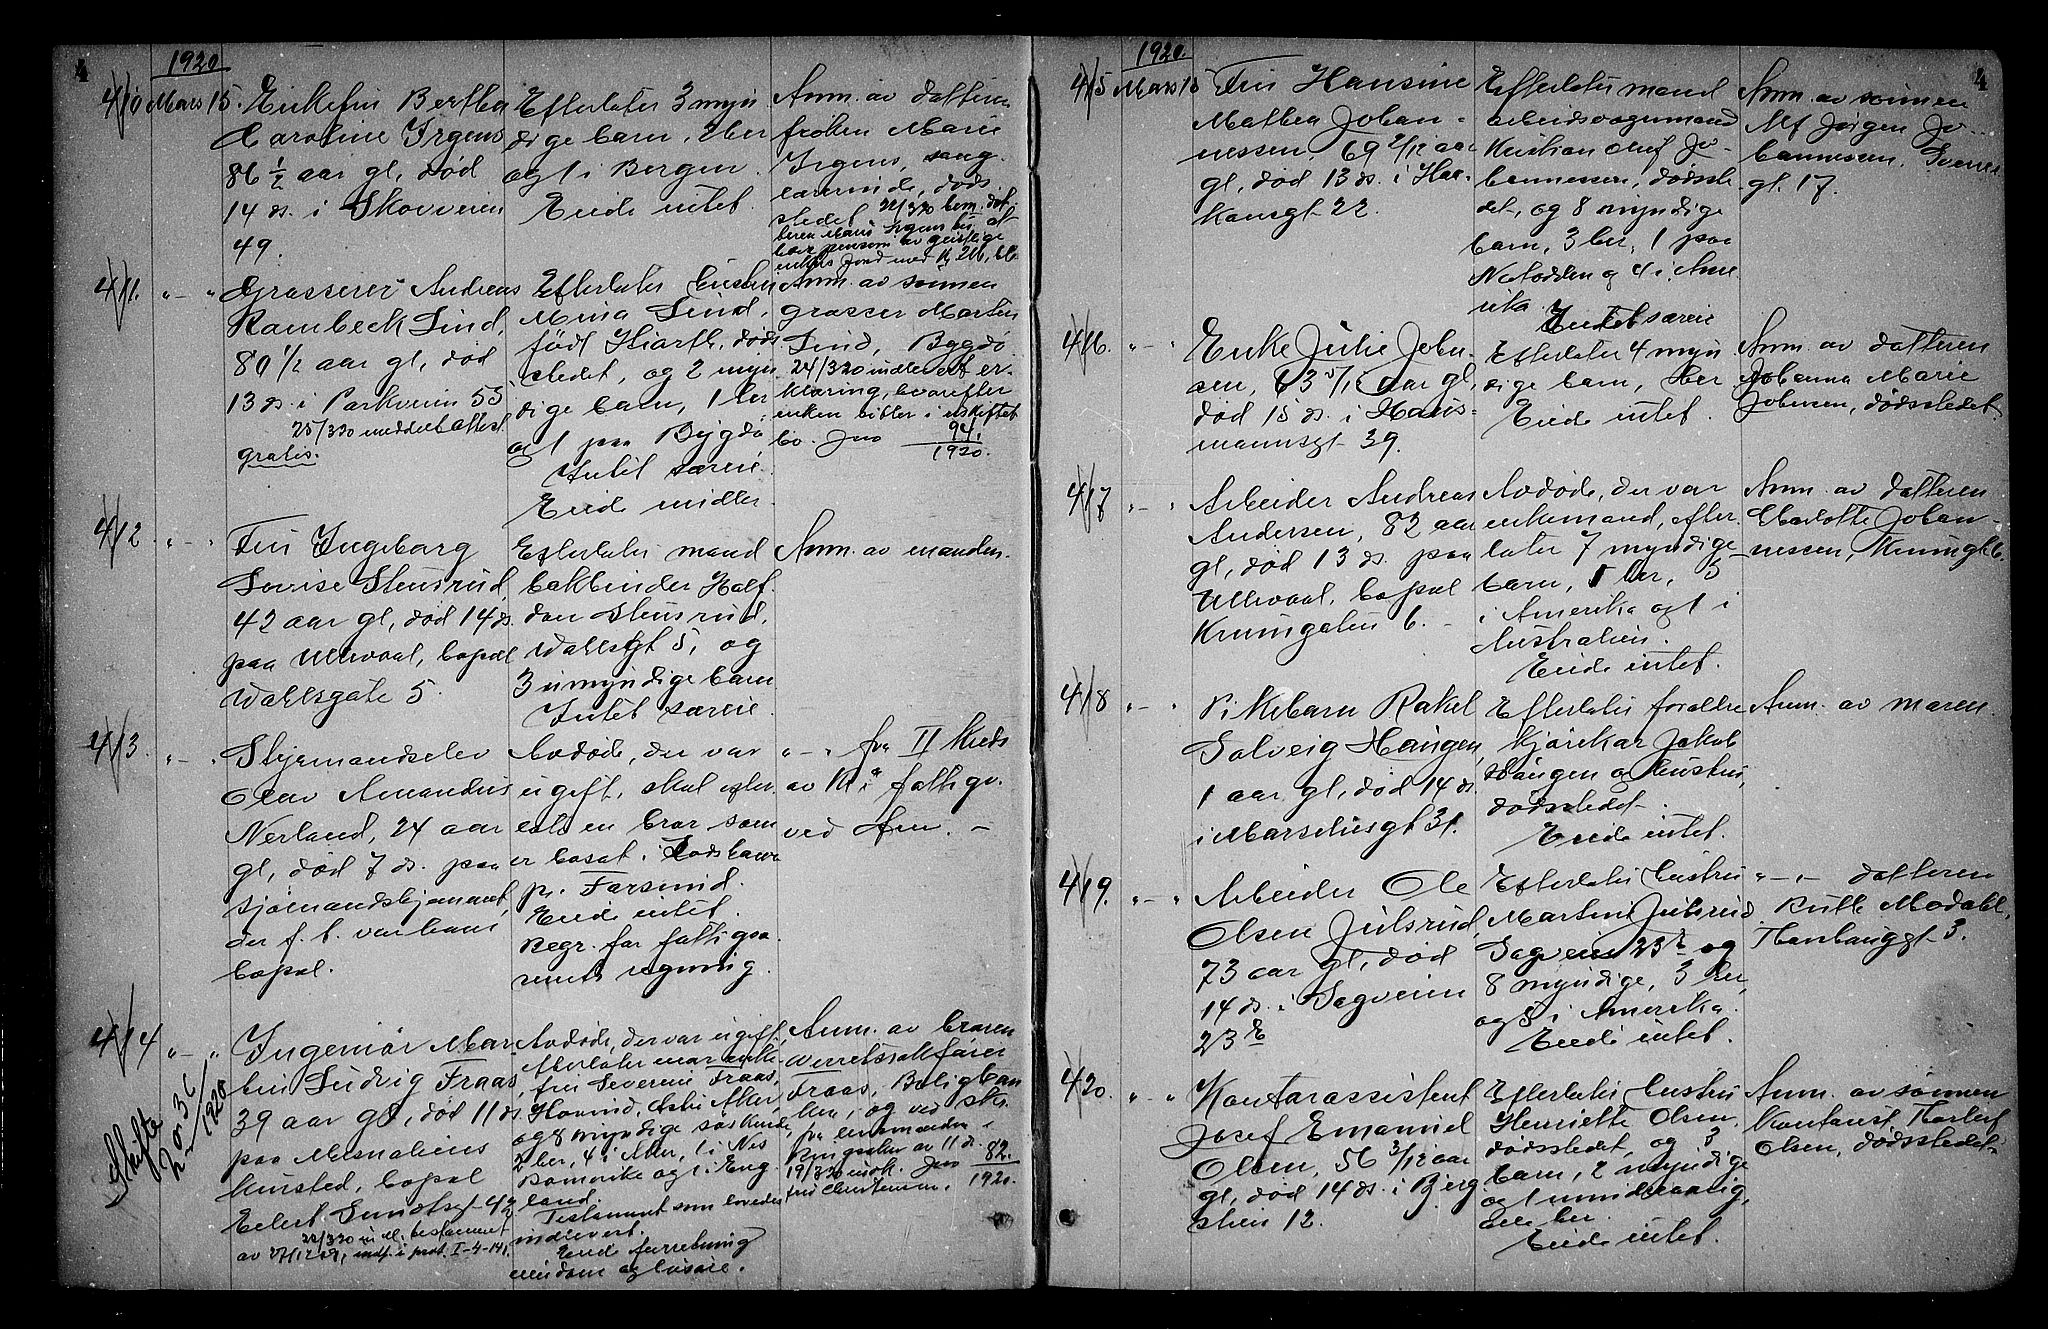 4
1920
4/10 Mars 15. Enkefru Bertha
Caroline Irgens
86 1/2 aar gl, død
14 ds. i Skovveien
49.
Efterlater 3 myn
dige barn, 2 her
og 1 i Bergen.
Eiede intet.
Anm. av datteren
frøken Marie
Irgens, sang-
lærerinde, døds
stedet. 22/3 20 bem. dat-
teren
pension av geistlige
enkers fond med
4/11. " - " Grosserer Andreas
Rambeck Lind,
80 1/2 aar gl, død
13 ds. i Parkveien 55
25/3 20 meddelt attest
gratis.
Efterlater hustru
Mina Lind,
født Hiorth, døds
stedet, og 2 myn
dige barn, 1 her
og 1 paa Bygdø
Intet særeie.
Eiede midler.
Anm. av sønnen
grosser Morten
Lind, Bygdø.
24/3 20 indlevert er-
klæring, hvorefter
enken sitter i uskiftet
bo. Jno 94.
1920.
4/12 " - " Fru Ingeborg
Lovise Stensrud,
42 aar gl, død 14 ds.
paa Ullevaal, bopæl
Wahlsgate 5.
Efterlater mand
bokbinder Half-
dan Stensrud,
Wahlsgt 5, og
3 umyndige barn
Intet særeie.
Anm. av manden.
4/13. " - " Styrmandselev
Olav Amandus
Nerland, 24 aar
gl, død 7 ds. paa
sjømandshjemmet,
der f. t. var hans
bopæl.
Avdøde, der var
ugift, skal efter-
late en bror som
er bosat i
pr. Farsund.
Eiede intet.
Begr. for fattigvæ
senets regning.
" - " fra II Kreds
av Kr.a fattigv.
ved
4/14 " - " Ingeniør Mar
tin Ludvig Fraas,
39 aar gl, død 11 ds.
paa Mesnaliens
kursted, bopæl
Eilert Sundtsgt 42
22/3 20 indl. testament
av 27/12 09, indf. i prot. I-4-141.
Skifte
2 or 36
1920
Avdøde, der var ugift,
efterlater mor enke-
fru Severine Fraas,
Hovind, Østre Aker,
og 8 myndige søskende
2 her, 4 i Aker, 1 i Nes
Romerike og 1 i Eng
land.
Testament som loves
indlevert.
Eiede forretning
eiendom og løsøre.
Anm. av broren
overretssakfører
Fraas, Boligban
ken, og ved skr.
fra lensmanden i
Ringsaker av 11 ds.
19/3 20 insk. Jno 82.
fru Christensen. 1920.
4
1920.
4/15 Mars 15 Fru Hansine
Mathea Johan-
nessen, 69 2/12 aar
gl, død 13 ds. i Haa-
konsgt 22.
Efterlater mand
arbeidsvognmand
Kristian Olaf Jo-
hannessen, dødsste-
det, og 8 myndige
barn, 3 her, 1 paa
Notodden og 4 i Ame
rika.
Intet særeie
Anm. av sønnen
Alf Jørgen Jo-
hannessen,
gt. 17.
4/16. " - " Enke Julie John-
sen, 63 5/12 aar gl,
død 15 ds. i Haus-
mannsgt 39.
Efterlater 4 myn
dige barn, her
Eiede intet.
Anm. av datteren
Johanna Marie
Johnsen, dødsstedet.
4/17 " - " Arbeider Andreas
Andersen, 82 aar
gl, død 13 ds. paa
Ullevaal, bopæl
Krumgaten 6. -
Avdøde, der var
enkemand, efter-
later 7 myndige
barn, 1 her, 5
i Amerika og 1 i
Australien.
Eiede intet.
Anm. av datteren
Charlotte Johan-
nessen, Krumgt. 6.
4/18 " - " Pikebarn Rakel
Solveig Haugen,
1 aar gl, død 14 ds.
i Marseliusgt 31.
Efterlater forældre
kjørekar Jakob
Haugen og hustru,
dødsstedet.
Eiede intet.
Anm. av moren.
4/19. " - " Arbeider Ole
Olsen Julsrud,
73 aar gl, død
14 ds. i Sagveien
23 b
Efterlater hustru
Martine Julsrud,
Sagveien 23 b og
8 myndige, 3 her,
og 5 i Amerika.
Eiede intet.
" - " datteren
Ruth Modahl,
Thorhauggt 3.
4/20. " - " Kontorassistent
Josef Emanuel
Olsen, 56 3/12 aar
gl, død 14 ds. i Berg
stien 12.
Efterlater hustru
Henriette Olsen,
dødsstedet, og 3
barn, 2 myndige
og 1 mindreaarig,
alle her.
Eiede intet.
Anm. av sønnen
kontorist Thorleif
Olsen, dødsstedet.